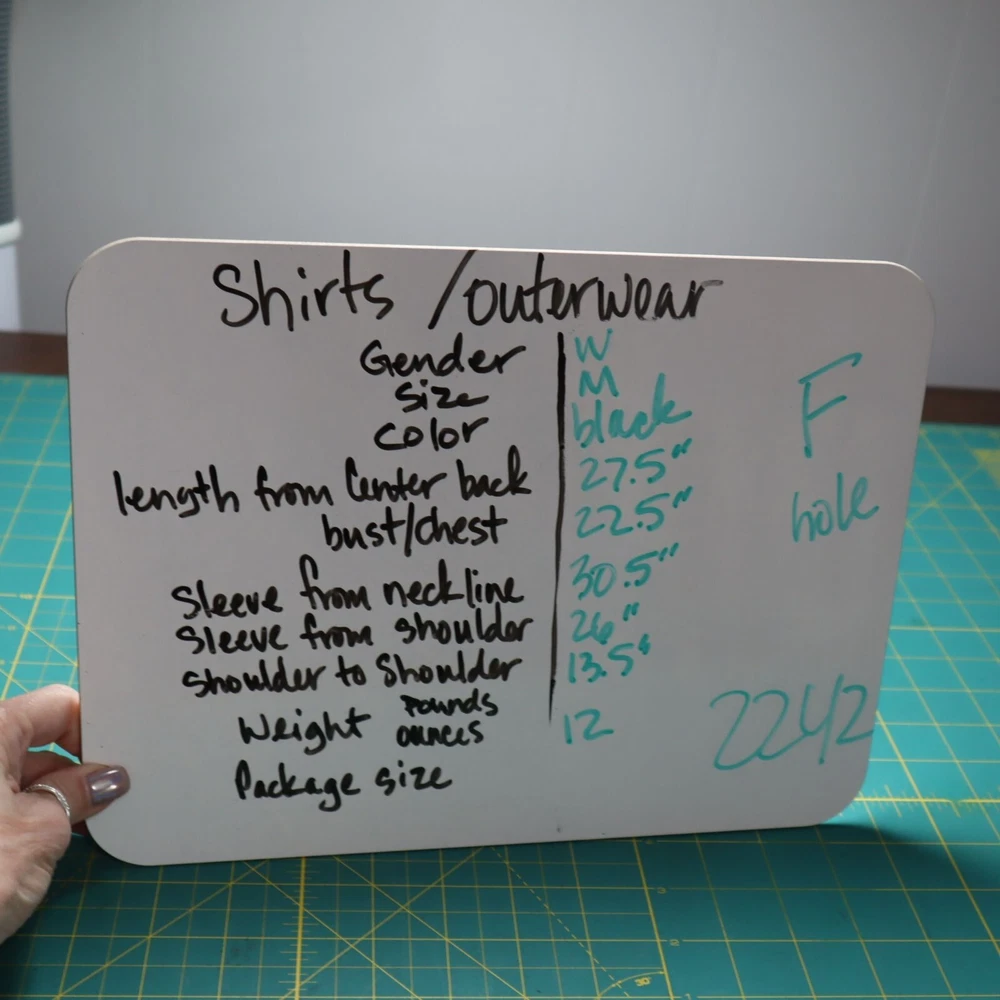 Shirts / outerwear
Gender W
Size M
Color black
length from Center back 27.5"
bust/chest 22.5"
Sleeve from neckline 30.5"
Sleeve from shoulder 26"
Shoulder to Shoulder 13.5"
Weight Pounds
ounces 12
Package size
F
hole
2242
30°
3
2
1